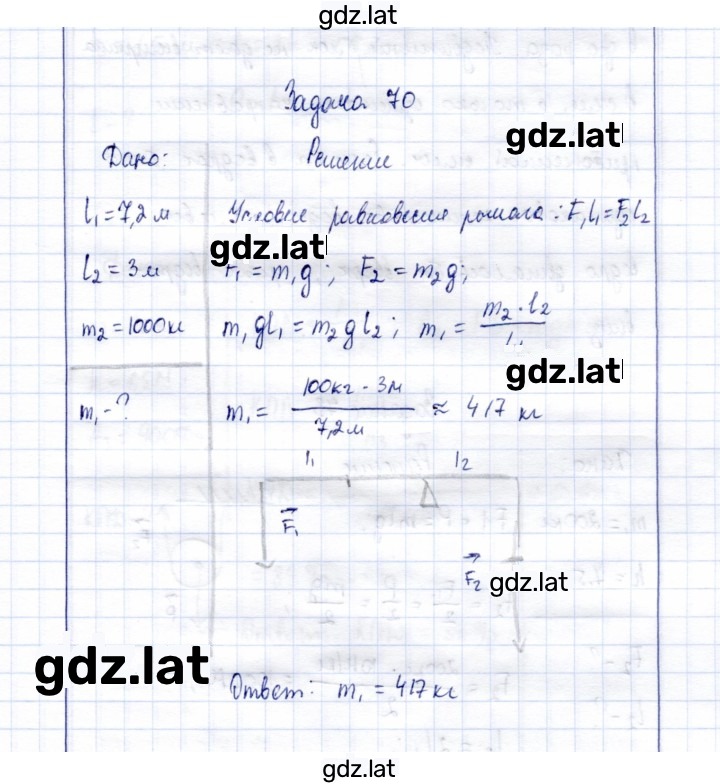 gdz.lat
Задача 70
gdz.lat
Дано:
Решение
l₁ = 7,2 м
Условие равновесия рычага: F₁l₁ = F₂l₂
gdz.lat
l₂ = 3 м
F₁ = m₁g; F₂ = m₂g;
m₂ = 1000 кг
m₁gl₁ = m₂gl₂; m₁ = m₂·l₂ / l₁
gdz.lat
m₁ - ?
m₁ = 100кг · 3м / 7,2 м ≈ 417 кг
l₁ l₂
F₁
F₂
gdz.lat
gdz.lat
Ответ: m₁ = 417 кг
gdz.lat